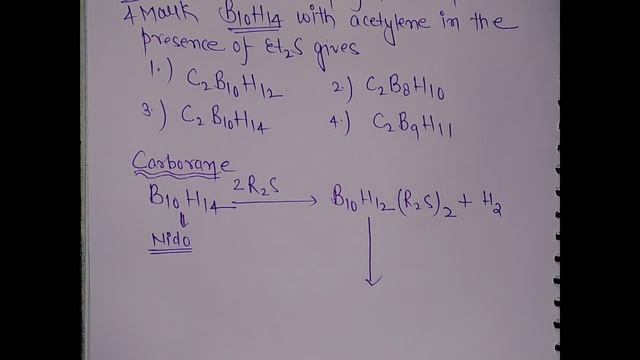 4 Mark B10H14 with acetylene in the
presence of Et2S gives
1.) C2B10H12 2.) C2B8H10
3.) C2B10H14 4.) C2B9H11
Carborane
B10H14 2R2S → B10H12(R2S)2 + H2
Nido